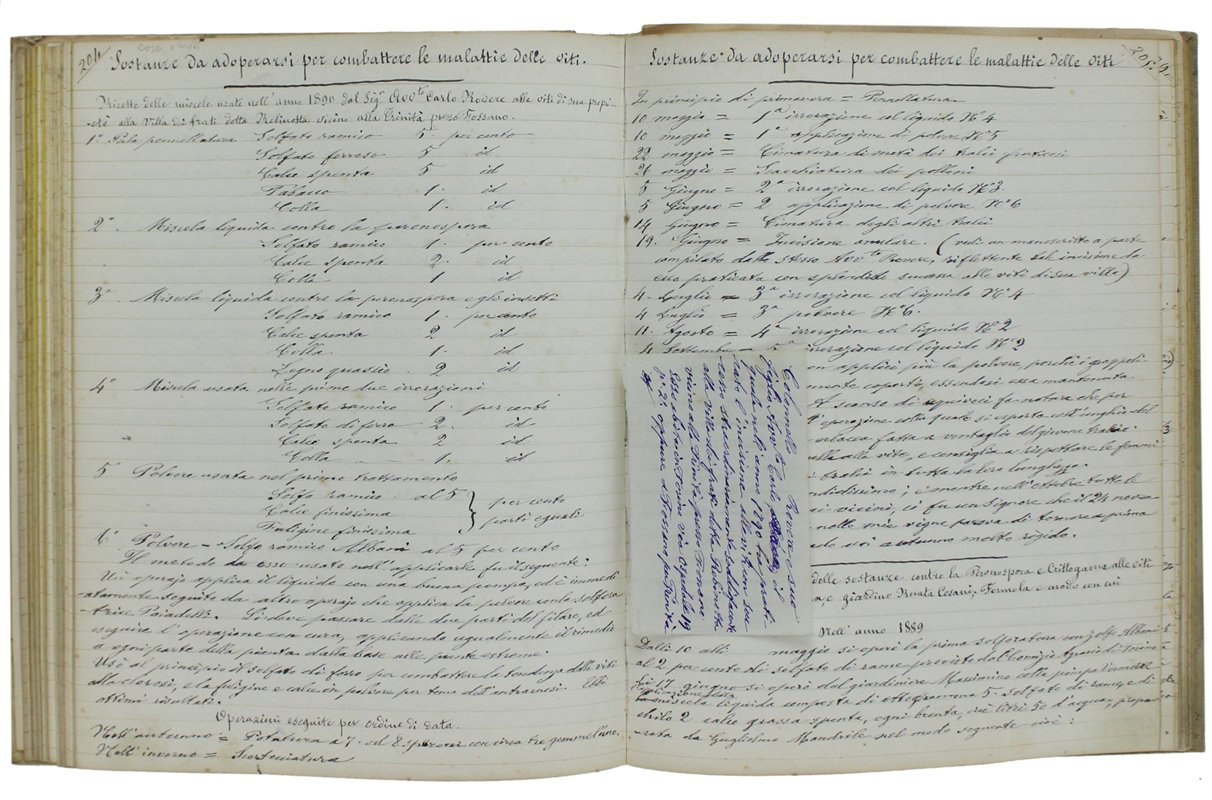 204
Sostanze da adoperarsi per combattere le malattie delle viti.
Ricette delle miscele usate nell'anno 1890 dal Sigr Avvto Carlo Rovere alle viti di sua propri-
età alla Villa di frati detta Robinetta vicino alla Trinità presso Fossano.
1a Pasta pennellatura Solfato ramico 5 per cento
Solfato ferroso 5 id
Calce spenta 5 id
Tabacco 1. id
Colla 1. id
2a Miscela liquida contro la peronospora
Solfato ramico 1. per cento
Calce spenta 2. id
Colla 1. id
3a Miscela liquida contro la peronospora e gli insetti
Solfato ramico 1. per cento
Calce spenta 2 id
Colla 1. id
Legno quassio 2 id
4a Miscela usata nelle prime due irrorazioni
Solfato ramico 1. per cento
Solfato di ferro 2. id
Calce spenta 2 id
Colla 1. id
5a Polvere usata nel primo trattamento
Solfo ramico al 5 per cento
Calce finissima parti eguali
Fuligine finissima
6a Polvere = Solfo ramico Albani al 5 per cento
Il metodo da esso usato nell'applicarle fu il seguente:
Un operajo applica il liquido con una buona pompa, ed è immedi-
atamente seguito da altro operajo che applica la polvere con la solfora-
trice. Si deve passare dalle due parti del filare, ed
eseguire l'operazione con cura, applicando egualmente il rimedio
a ogni parte della pianta dalla base alle punte estreme.
Usò al principio il solfato di ferro per combattere la tendenza delle viti
alla clorosi, e la fuligine e calce in polvere per tema dell'antracnosi. Ebbe
ottimi risultati.
Operazioni eseguite per ordine di data.
Nell'autunno = Potatura a 7. od 8 speroni con circa tre gemme l'uno.
Nell'inverno = Scortecciatura
Sostanze da adoperarsi per combattere le malattie delle viti
In principio di primavera = Pennellatura
10 maggio = 1a irrorazione col liquido No 4
10 maggio = 1a applicazione di polvere No 5
22 maggio = Cimatura di metà dei tralci fruttiferi
26 maggio = Spacchiatura dei polloni
5 Giugno = 2a irrorazione col liquido No 3.
5 Giugno = 2 applicazione di polvere No 6
14 Giugno = Cimatura degli altri tralci
19. Giugno = Incisione anulare. (vedi un manoscritto a parte
compilato dallo stesso Avvto Rovere, riflettente tal incisione da
esso praticata con splendido successo alle viti di sua villa)
4. Luglio = 3a irrorazione col liquido No 4
4 Luglio = 3a polvere No 6.
11. Agosto = 4a irrorazione col liquido No 2
4 Settembre = 5a irrorazione col liquido No 2
applicò più la polvere, perchè i grappoli
mente coperti, essendosi essa mantenuta
A scanso di equivoci fa notare che per
operazione colla quale si esporta coll'unghia del
fatta a vantaggio del giovane tralcio
alla vite, e consiglia a rispettare le
tralci in tutta la loro lunghezza.
; e mentre nell'ottobre tutte le
vicini, ci fu un signore che il 24 nova
nelle mie vigne pareva di tornare a prima
autunno molto rigido.
Colonnello Rovere o suo
figlio Avvto Carlo, il
quale nell'anno 1890 ha prati-
cato l'incisione alle viti con suc-
cesso straordinariamente soddisfacente
alla villa di frati detta Robinetta
vicino alla Trinità presso Fossano
Esso abita in Torino via Ospedale 19
po 2o oppure a Fossano per Trinità
delle sostanze contro la Peronospora e Crittogama alle viti
e giardino Cesani, Formola e modo con cui
Nell'anno 1889
Dalli 10 alli maggio si operò la prima solforatura con zolfo Albani
al 2 per cento di solfato di rame provvisto dal Comizio Agrario di Torino
Li 17 giugno si operò dal giardiniere Massimino colla pompa
miscela liquida composta di ettogramma 5. Solfato di rame, e di
chilo 2 calce grassa spenta, ogni brenta, cioè litri 50 d'acqua; prepa-
rata da Guglielmo Mandrile nel modo seguente cioè: